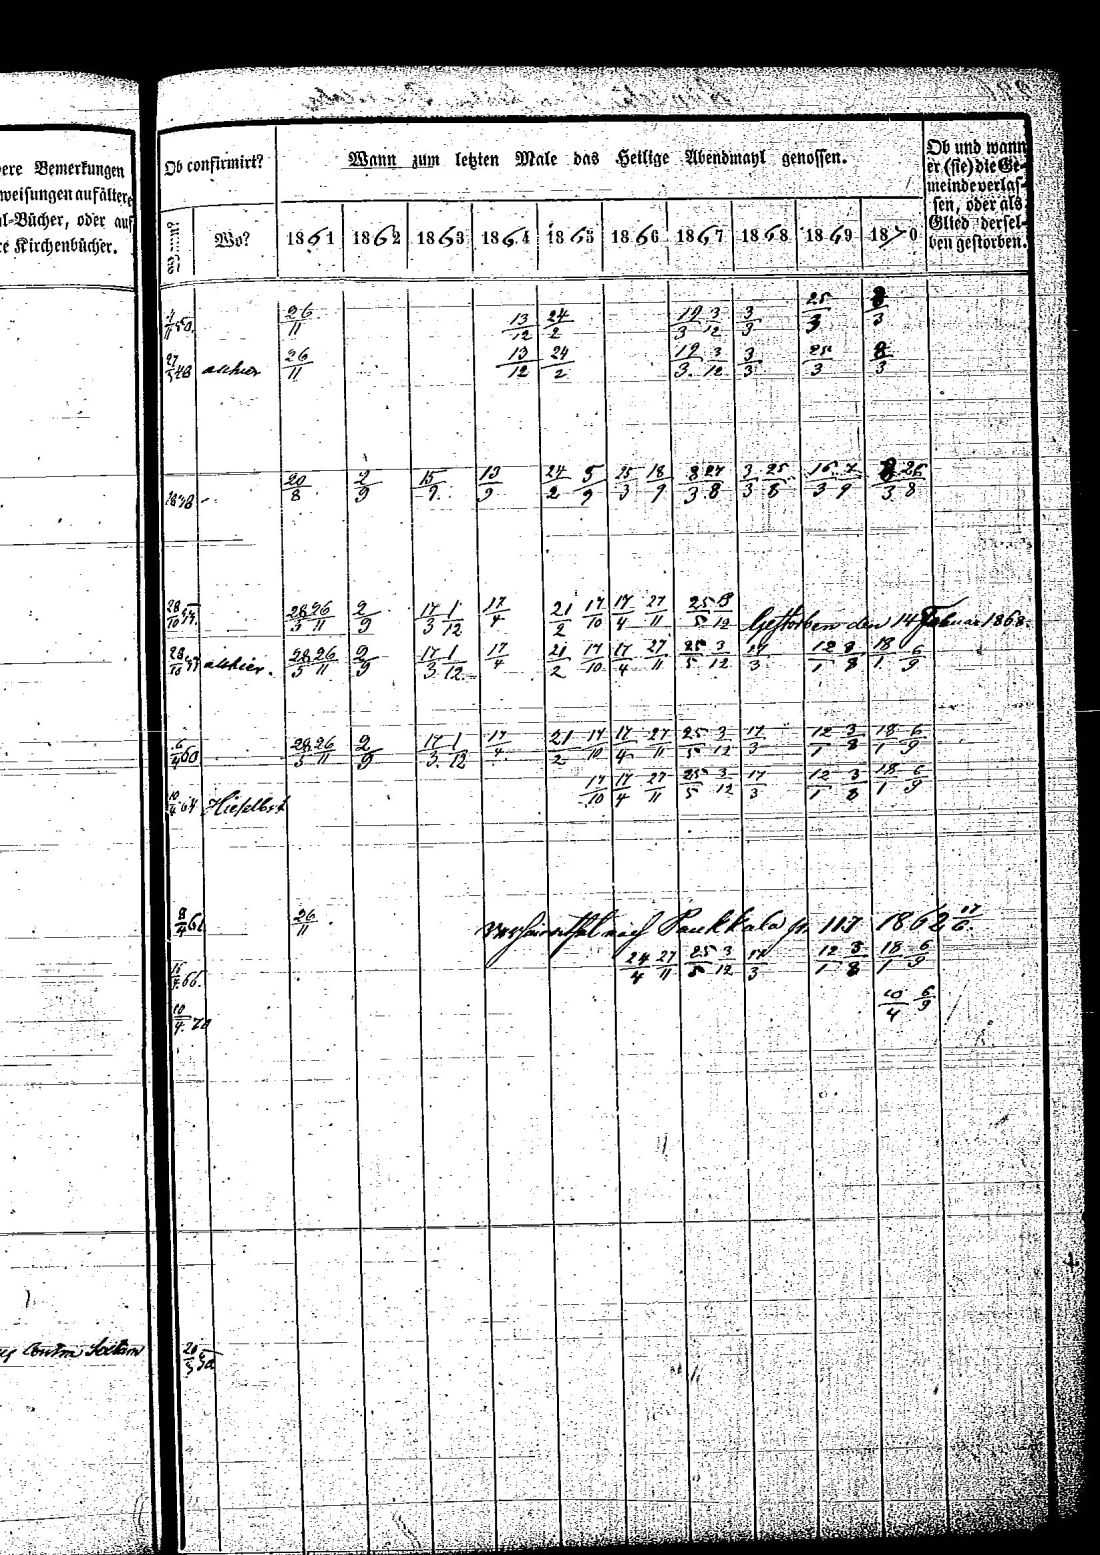 Bemerkungen
weisungen auf ältere
l-Bücher, oder auf
Kirchenbücher.
Ob confirmirt?
Wann zum letzten Male das Heilige Abendmahl genossen.
Ob und wann
er (sie) die Ge-
meinde verlas-
sen, oder als
Glied dersel-
ben gestorben.
Wo?
1861 1862 1863 1864 1865 1866 1867 1868 1869 1870
26/11 13/12 24/2 19/3 3/12 3/3 25/3 8/3
27/5 48 allhier 26/11 13/12 24/2 19/3 3/12 3/3 25/3 8/3
20/8 2/9 15/9 13/9 24/2 5/9 25/3 18/9 8/3 27/8 3/3 25/8 16/3 7/9 8/3 26/8
28/10 28/5 26/11 2/9 17/3 1/12 17/4 21/2 17/10 17/4 27/11 25/5 3/12 Gestorben den 14 Februar 1868.
28/10 allhier. 28/5 26/11 2/9 17/3 1/12 17/4 21/2 17/10 17/4 27/11 25/5 3/12 17/3 12/1 3/8 18/1 6/9
6/4 60 28/5 26/11 2/9 17/3 1/12 17/4 21/2 17/10 17/4 27/11 25/5 3/12 17/3 12/1 3/8 18/1 6/9
10/4 64 Hieselbst 17/10 17/4 27/11 25/5 3/12 17/3 12/1 3/8 18/1 6/9
8/4 61 26/11 Verheirathet nach Paukkala 117 1862 17/6.
66. 24/4 27/11 25/5 3/12 17/3 12/1 3/8 18/1 6/9
10/4 70 10/4 6/9
20/5